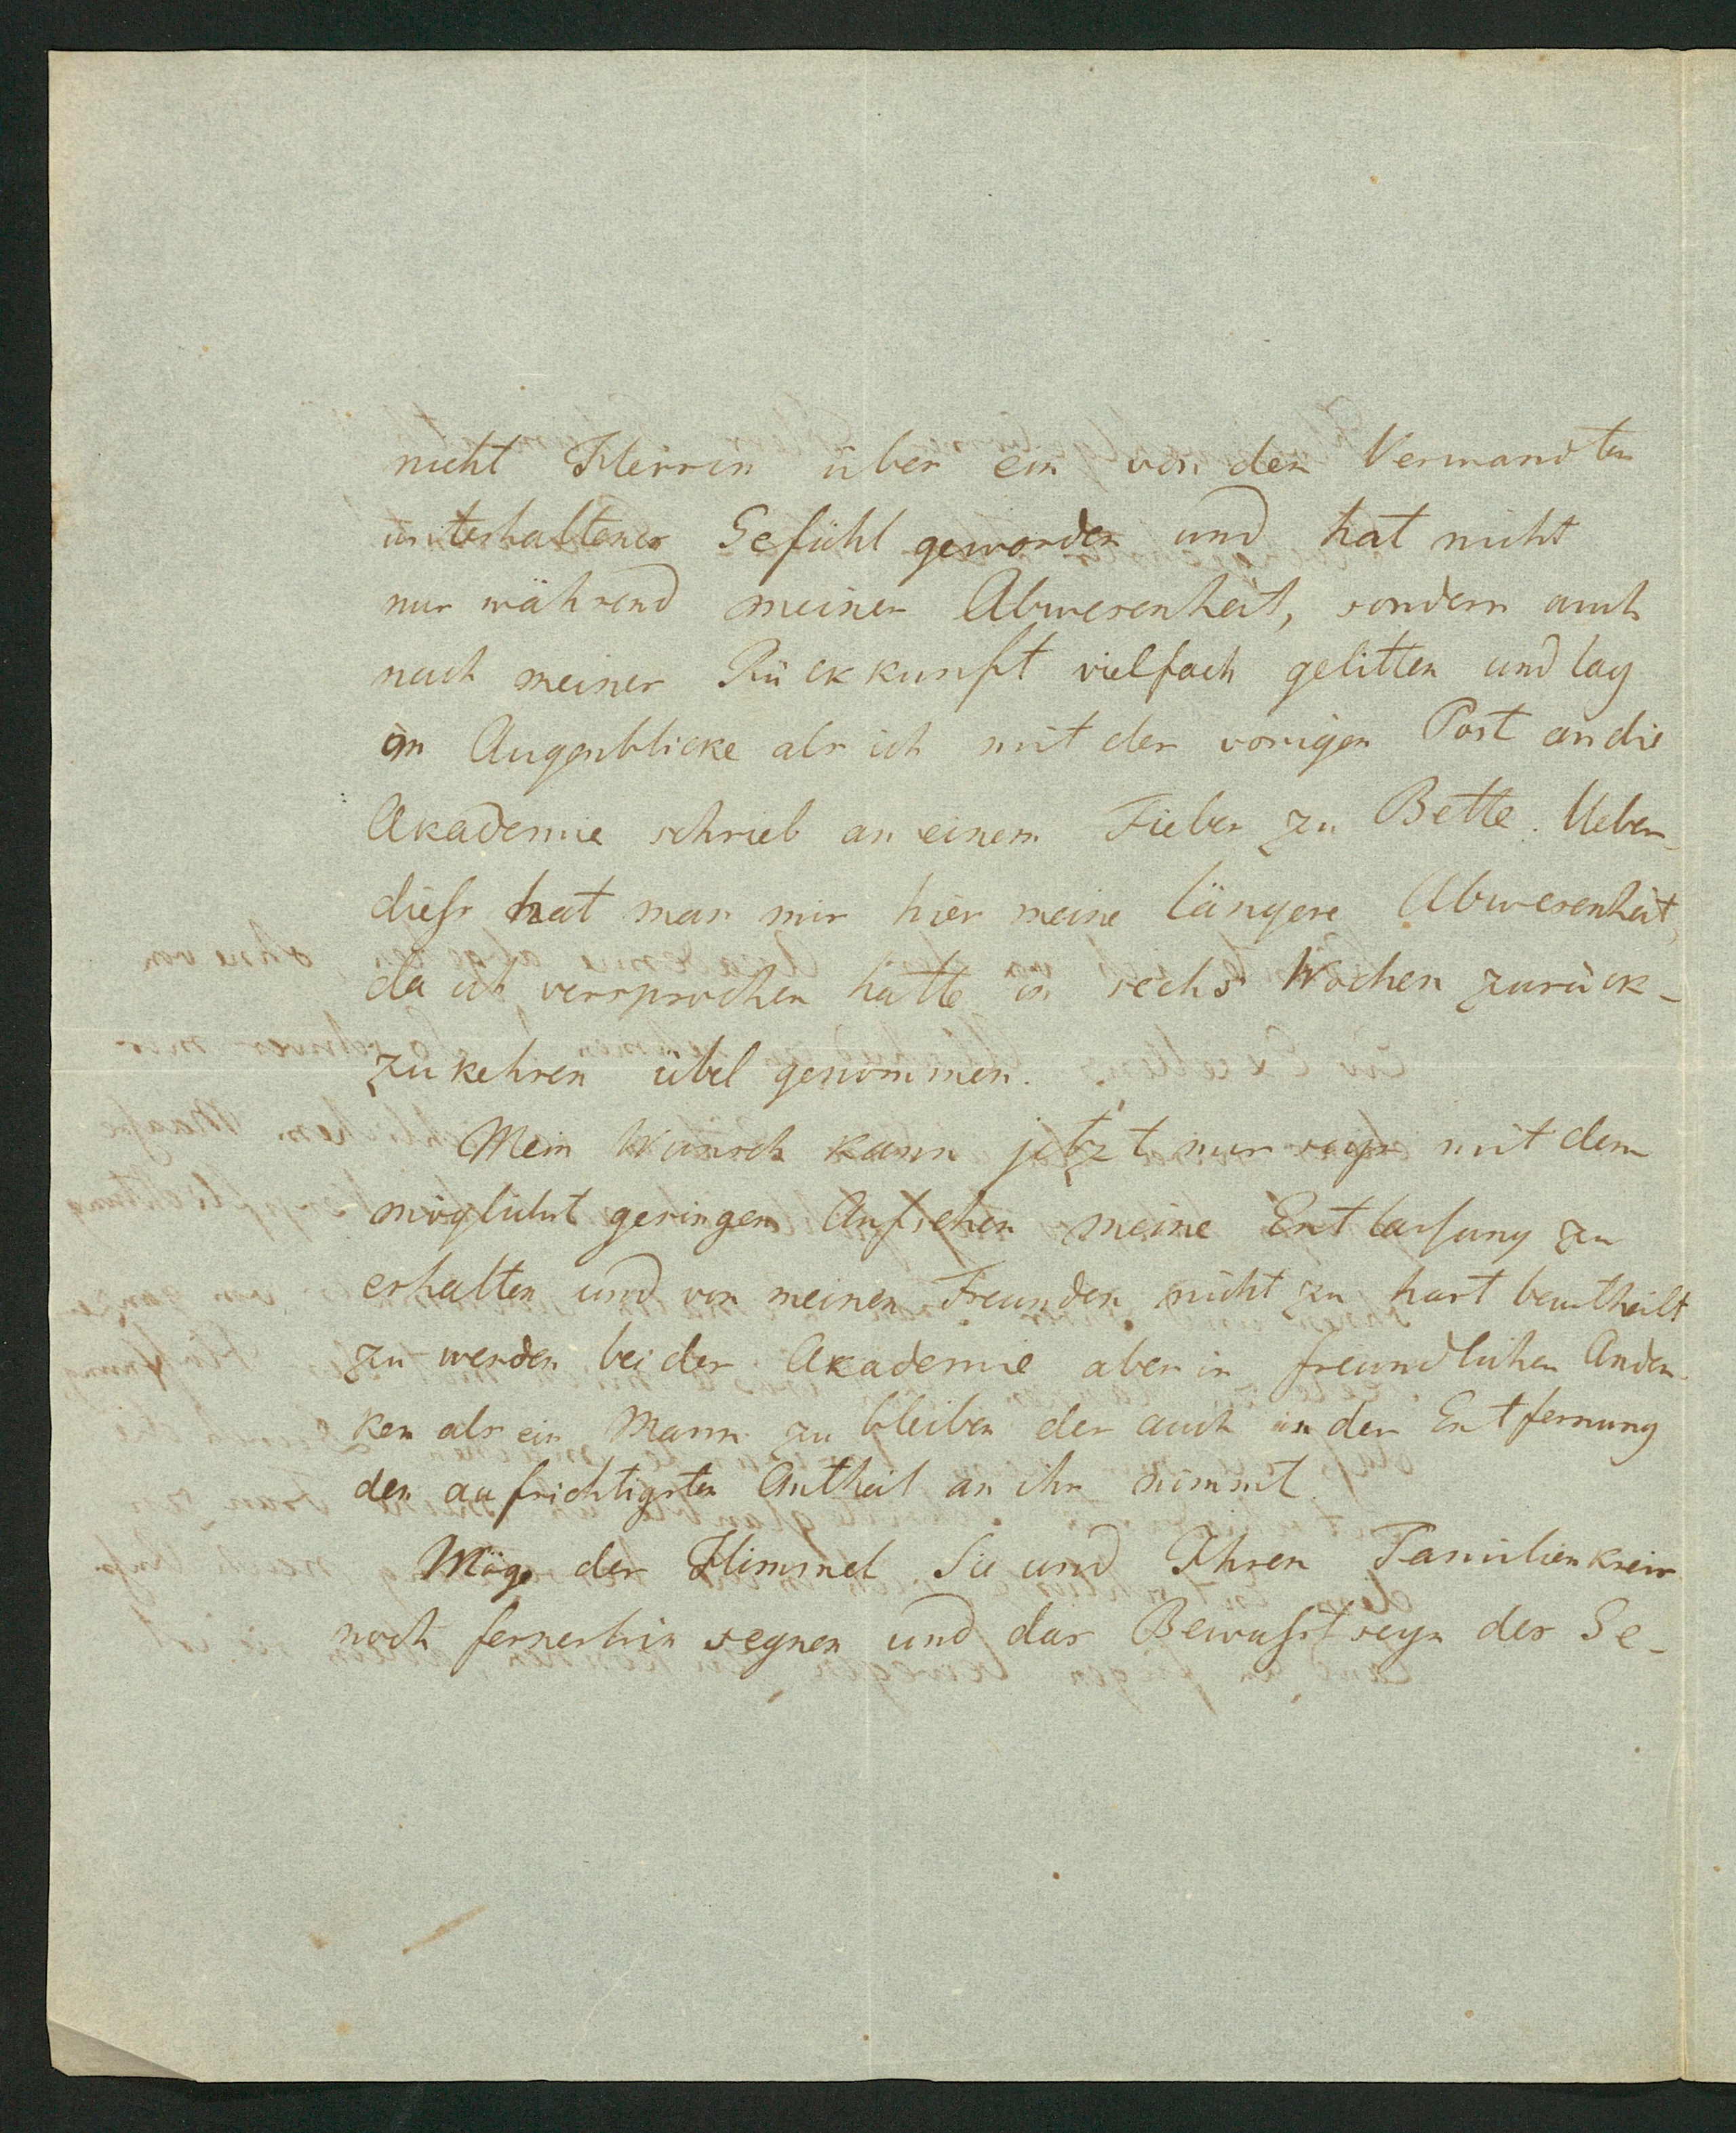 nicht Herrin über ein von den Verwandten
unterhaltenes Gefühl geworden und hat nicht
nur während meiner Abwesenheit, sondern auch
nach meiner Rückkunft vielfach gelitten und lag
im Augenblicke als ich mit der vorigen Post an die
Akademie schrieb an einem Fieber zu Bette. Ueber-
dieß hat man mir hier meine längere Abwesenheit,
da ich versprochen hatte in sechs Wochen zurück-
zukehren übel genommen.
Mein Wunsch kann jetzt nur seyn mit dem
möglichst geringen Aufsehen meine Entlaßung zu
erhalten und von meinen Freunden nicht zu hart beurtheilt
zu werden bei der Akademie aber in freundlichen Anden-
ken als ein Mann zu bleiben der auch in der Entfernung
den aufrichtigsten Antheil an ihr nimmt.
Möge der Himmel Sie und Ihren Familienkreis
noch fernerhin segnen und das Bewußtseyn des Ge-